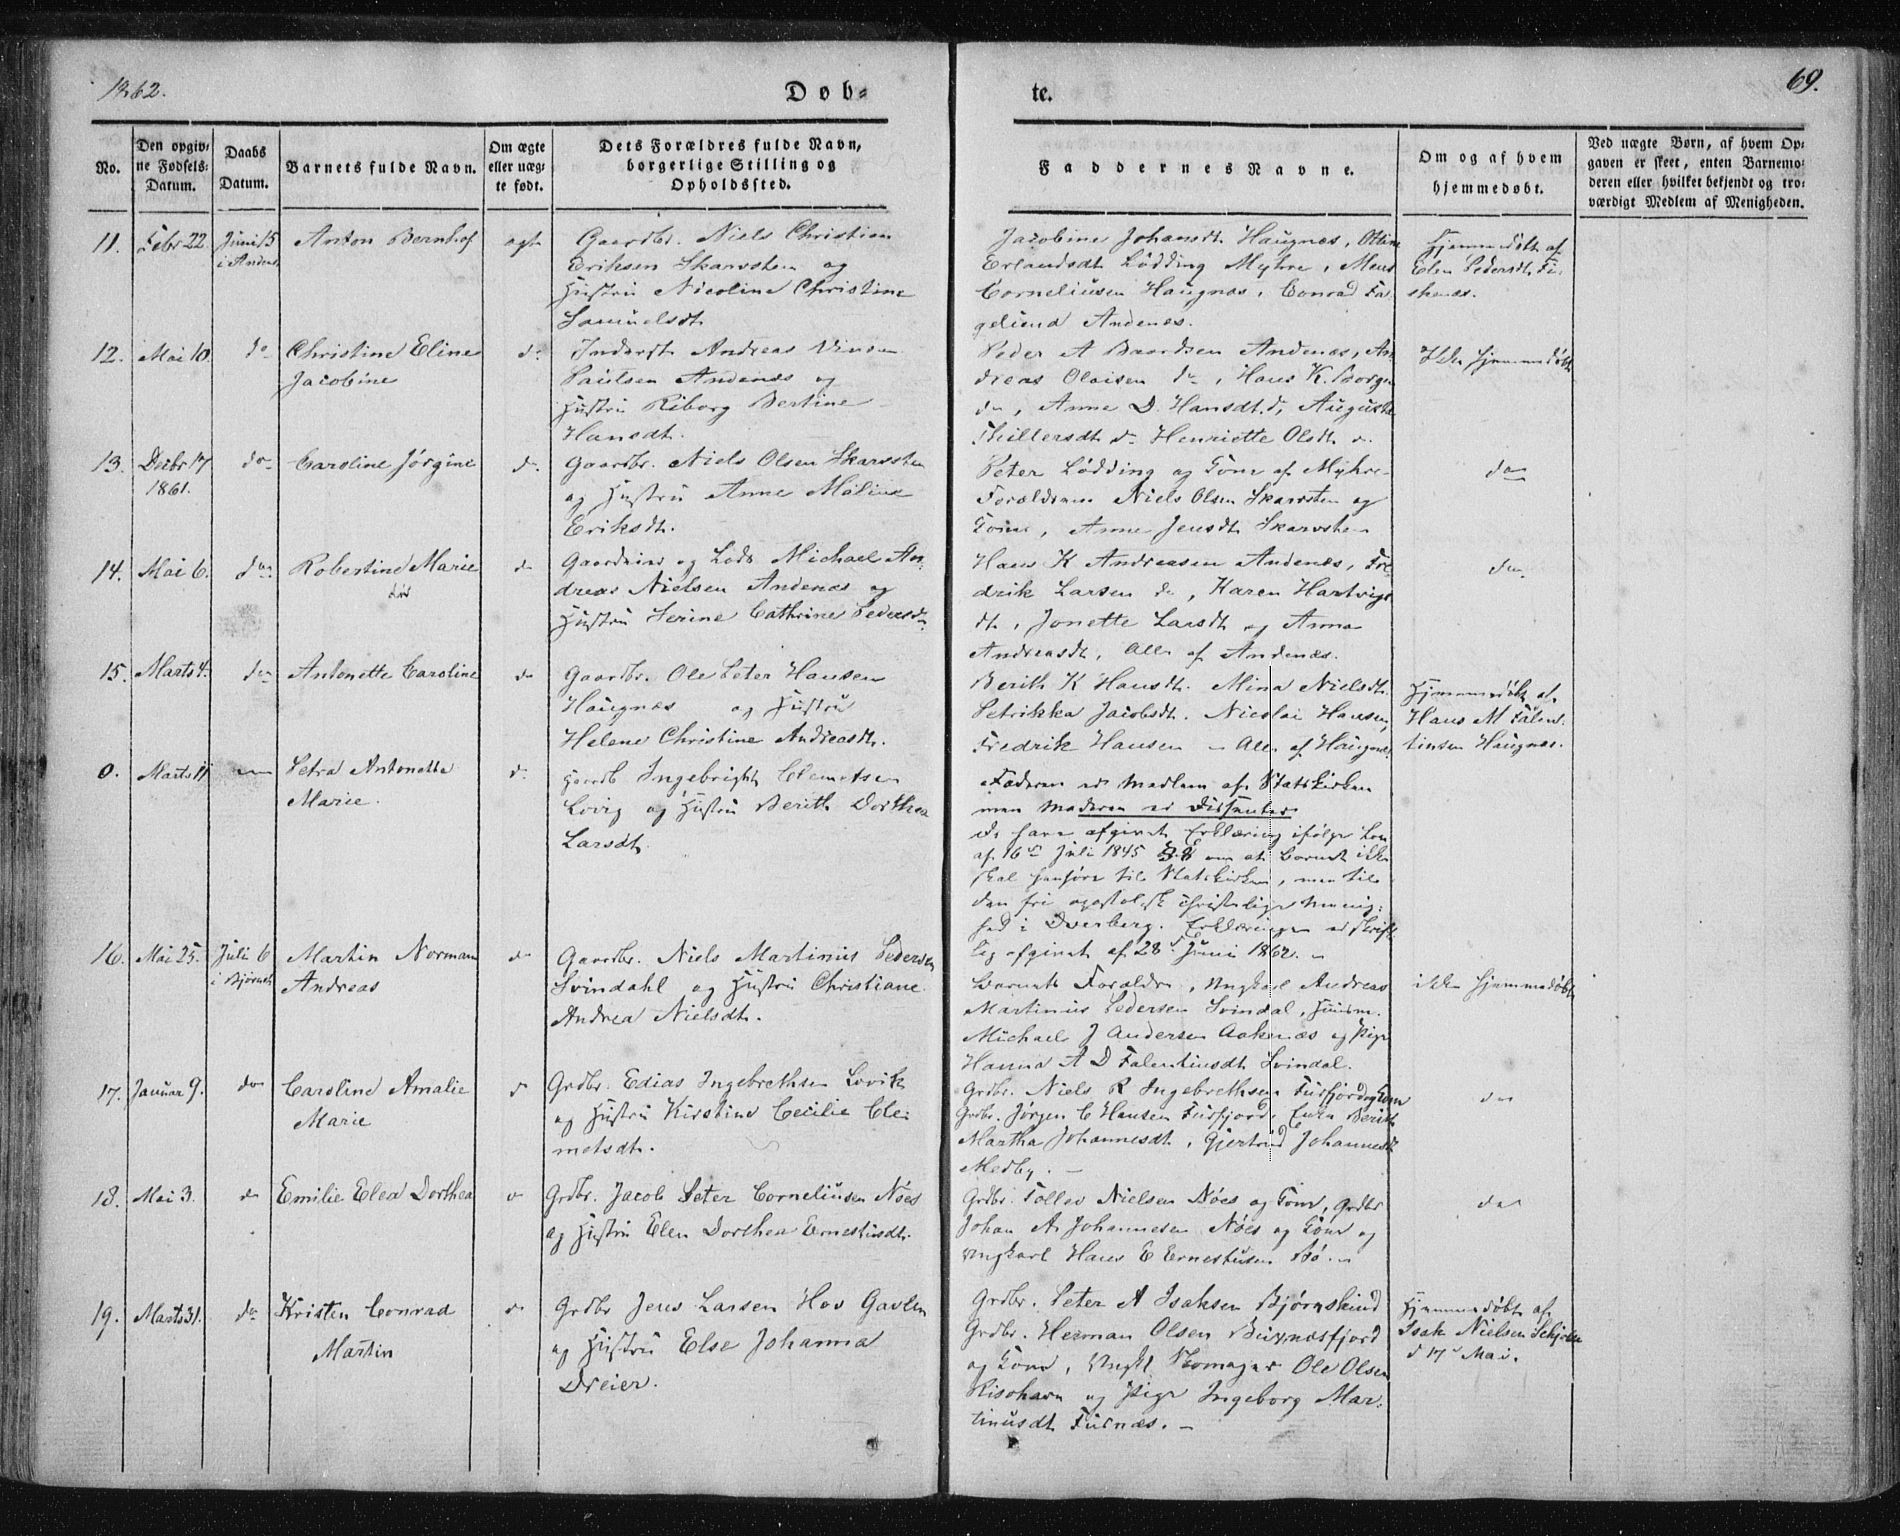 1862.
Døb-
te.
69.
No.
Den opgiv-
ne Fødsels-
Datum.
Daabs
Datum.
Barnets fulde Navn.
Om ægte
eller uæg-
te født.
Dets Forældres fulde Navn,
borgerlige Stilling og
Opholdssted.
Faddernes Navne.
Om og af hvem
hjemmedøbt.
Ved uægte Børn, af hvem Op-
gaven er skeet, enten Barnemo-
deren eller hvilket bekjendt og tro-
værdigt Medlem af Menigheden.
11.
Febr 22.
Juni 15
i Andenæs
Anton Bernhof
ægt
Gaardbr. Niels Christian
Eriksen Skarvsten og
Hustru Nicoline Christine
Samuelsdt
Jacobine Johansdt Haugnæs, Oline
Erlandsdt Lødding Myhre, Mens
Corneliusen Haugnæs, Conrad
Andenæs.
Hjemmedøbt af
Elen Pedersdt Fi-
skenæs.
12.
Mai 10.
do
Christine Eline
Jacobine
do
Inderst Andreas
Paulsen Andenæs og
Hustru Riborg Bertine
Hansdt.
Peder A Baardsen Andenæs, An-
dreas Olaisen do, Hans K.
do, Anne D. Hansdt. do, Augusta
do Henriette Olsdt do.
Ikke hjemmedøbt
13.
Decbr 17
1861.
do
Caroline Jørgine
do
Gaardbr. Niels Olsen Skarvsten
og Hustru Anne Maline
Eriksdt.
Peter Lødding og Kone af Myhre
Forældrene Niels Olsen Skarvsten og
Kone, Anne Jensdt Skarvsten
do
14.
Mai 6.
do
Robertine Marie
do
Gaardeier og Lods Michael An-
dreas Nielsen Andenæs og
Hustru Serine Cathrine Pedersdt.
Hans K Andreasen Andenæs, Fre-
drik Larsen do, Karen Hartvigs
dt, Jonette Larsdt og Anna
Andreasdt, Alle af Andenæs.
do
15.
Marts 4.
do
Antonette Caroline
do
Gaardbr. Ole Peter Hansen
Haugnæs og Hustru
Helene Christine Andreasdt.
Berith K Hansdt. Mina Nielsdt.
Petrikka Jacobsdt. Nicolai Hansen,
Fredrik Hansen - Alle af Haugnæs
Hjemmedøbt af
Hans M Falen-
tinsen Haugnæs.
0.
Marts 11
Petra Antonette
Marie.
do
Gaardb Ingebright Clemetsen
Lovig og Hustru Berith Dorthea
Larsdt.
Faderen er Medlem af Statskirken
men Moderen er Dissenter
De have afgivet Erklæring ifølge Lov
af 16de Juli 1845 § 8 om at Barnet ikke
skal henføre til Statskirken, men til
den fri apostoliske christelige Menig-
hed i Dverberg. Erklæringen er skrift-
lig afgivet af 28de Juni 1862. -
16.
Mai 25.
Juli 6
i Bjørnsk
Martin Norman
Andreas
do
Gaardbr. Niels Martinus Pedersen
Svindahl og Hustru Christiane
Andrea Nielsdt.
Barnets Forældre, Ungkarl Andreas
Martinus Pedersen Svindal, Huusm.
Michael J Andersen Aaknæs og Pige
Hanna A D Falentinsdt Svindal.
ikke hjemmedøbt
17.
Januar 9.
do
Caroline Amalie
Marie
do
Grdbr. Edias Ingebrethsen Lovik
og Hustru Kirstine Cecilie Cle-
metsdt.
Grdbr. Niels R Ingebrethsen Fusfjord og Kone
Grdbr. Jørgen C Hansen Fusfjord, Enke Berith
Martha Johannesdt, Gjertrud Johannesdt
Medby. -
do
18.
Mai 3.
do
Emilie Elea Dorthea
do
Grdbr. Jacob Peter Corneliusen Nøes
og Hustru Elen Dorthea Ernestusdt.
Grdbr. Tollev Nielsen Nøes og Kone, Grdbr
Johan A. Johannesen Nøes og Kone og
Ungkarl Hans E Ernestusen Bø. -
do
19.
Marts 31.
do
Kristen Conrad
Martin
do
Grdbr Jens Larsen Hov Gavlen
og Hustru Else Johanna
Dreier.
Grdbr. Peter A Isaksen Bjørnskind
Grdbr. Herman Olsen Buxnæsfjord
og Kone, Ungk Skomager Ole Olsen
Risohavn og Pige Ingeborg Mar-
tinusdt Furnæs. -
Hjemmedøbt af
Isak Nielsen
d 17de Mai.